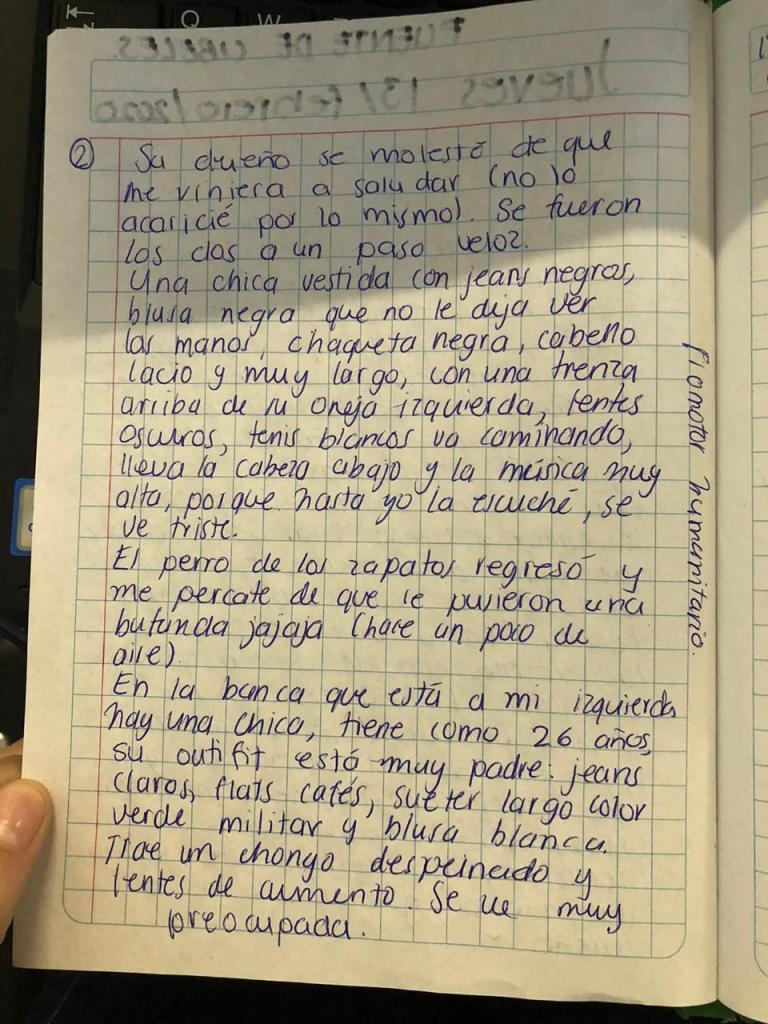 FUENTE DE CIBELES.
Jueves 13/febrero/2020
② Su dueño se molestó de que
me viniera a saludar (no lo
acaricié por lo mismo). Se fueron
los dos a un paso veloz.
Una chica vestida con jeans negros,
blusa negra que no le deja ver
las manos, chaqueta negra, cabello
lacio y muy largo, con una trenza
arriba de su oreja izquierda, lentes
oscuros, tenis blancos va caminando,
lleva la cabeza abajo y la música muy
alta, porque hasta yo la escuché, se
ve triste.
El perro de los zapatos regresó y
me percate de que le pusieron una
bufunda jajaja (hace un poco de
aire).
En la banca que está a mi izquierda
hay una chica, tiene como 26 años,
su outifit está muy padre: jeans
claros, flats cafés, suéter largo color
verde militar y blusa blanca.
Trae un chongo despeinado y
lentes de aumento. Se ve muy
preocupada.
Promotor humunitario.